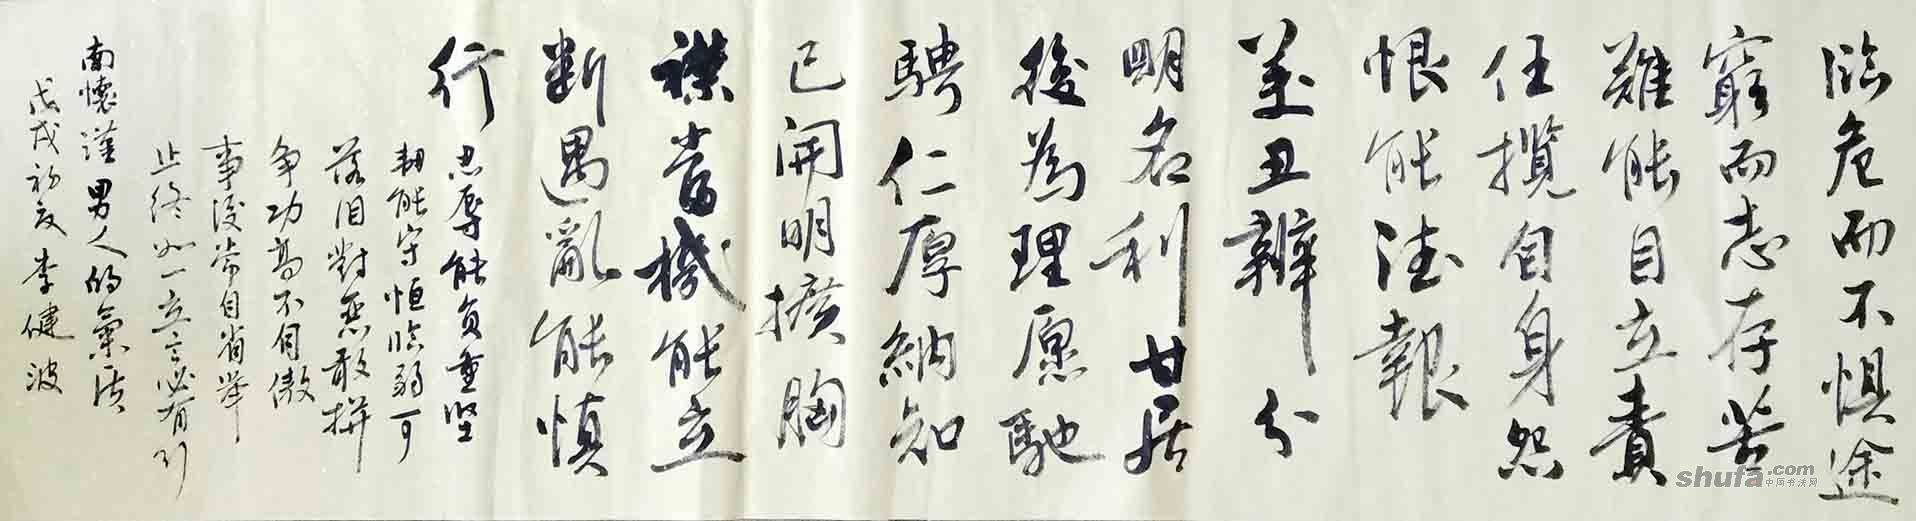 臨危而不惧途
窮而志存苦
難能自立責
任攬自身怨
恨能德報
美丑辨分
明名利甘居
後為理愿馳
騁仁厚納知
已開明擴胸
襟當機能立
斷遇亂能慎
行忍辱能負重坚
韧能守恒臨弱可
落泪對惡敢拼
争功高不自傲
事後常自省举
止终如一立言必有行
南懷瑾男人的氣
戊戌初夏李健波
shufa.com
中国书法网